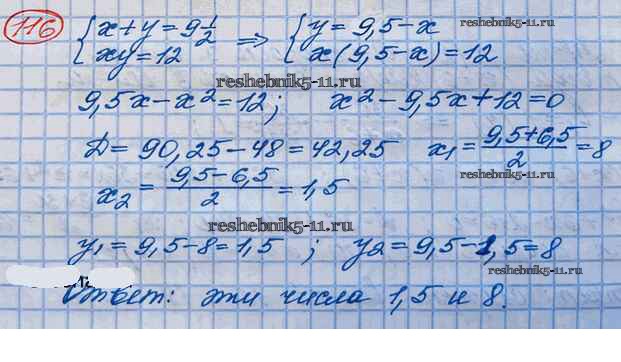 116 { x + y = 9 1/2 ⇒ { y = 9,5 - x
xy = 12 x(9,5 - x) = 12
reshebnik5-11.ru
reshebnik5-11.ru
9,5x - x² = 12; x² - 9,5x + 12 = 0
reshebnik5-11.ru
D = 90,25 - 48 = 42,25 x₁ = (9,5 + 6,5)/2 = 8
reshebnik5-11.ru
x₂ = (9,5 - 6,5)/2 = 1,5
reshebnik5-11.ru
y₁ = 9,5 - 8 = 1,5 ; y₂ = 9,5 - 1,5 = 8
reshebnik5-11.ru
Ответ: эти числа 1,5 и 8.